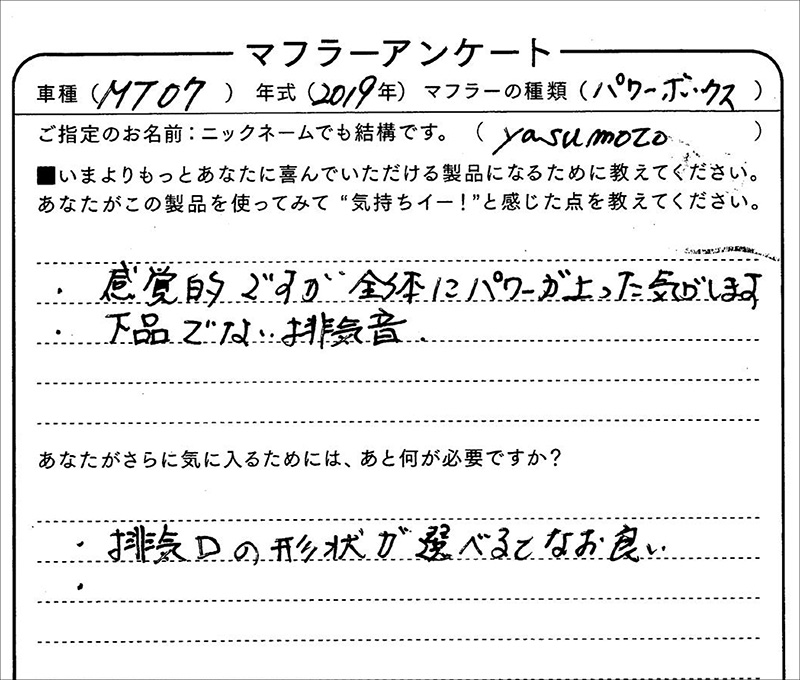 マフラーアンケート
車種（MT07）年式（2019年）マフラーの種類（パワーボックス）
ご指定のお名前：ニックネームでも結構です。（yasumoto）
■いまよりもっとあなたに喜んでいただける製品になるために教えてください。
あなたがこの製品を使ってみて“気持ちイー！”と感じた点を教えてください。
・感覚的ですが全体にパワーが上った気がします
・下品でない排気音.
あなたがさらに気に入るためには、あと何が必要ですか？
・排気口の形状が選べるとなお良い
・